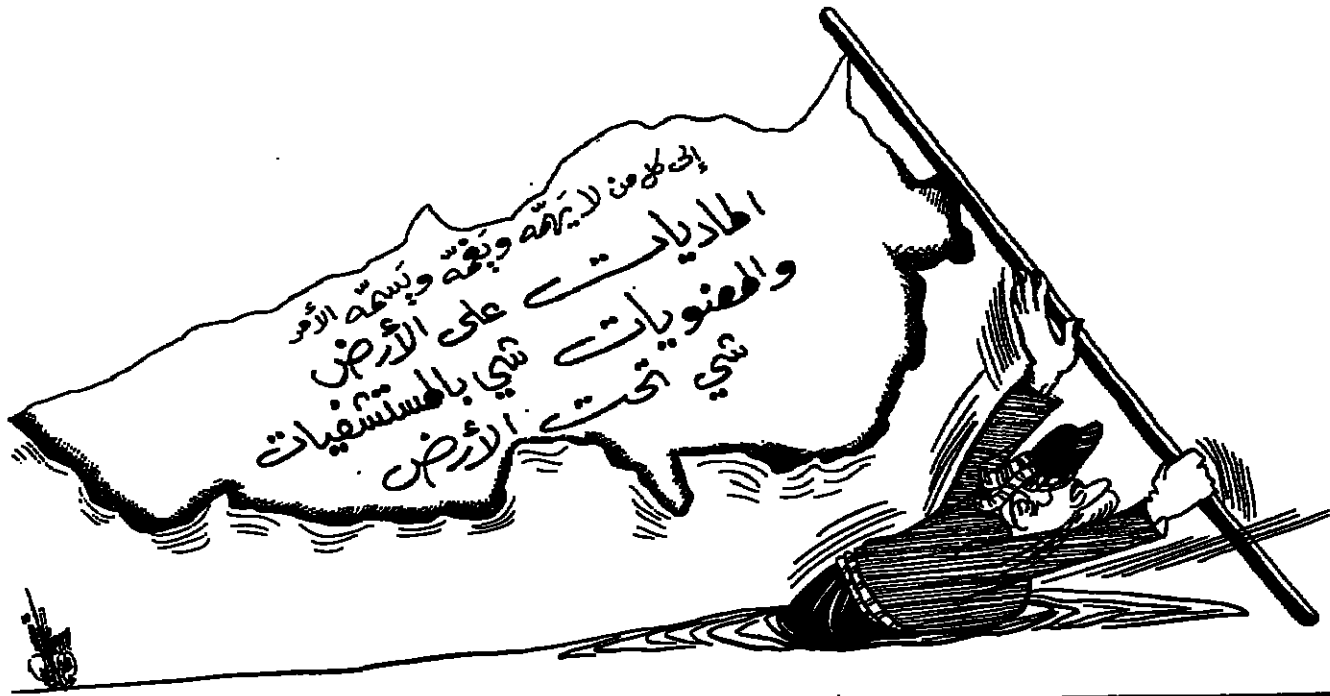 إلى كل من لا يَهمّه ويَغمّه ويَسمّه الأمر
الماديات على الأرض
والمعنويات شي بالمستشفيات
شي تحت الأرض